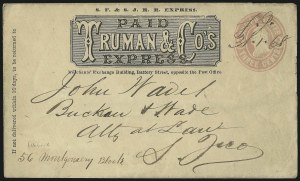 S. F. & S. J. R. R. EXPRESS.
PAID
TRUMAN & CO'S
EXPRESS
Merchants' Exchange Building, Battery Street, opposite the Post Office.
If not delivered within 10 days, to be returned to
John Wade
Buckan & Wade
Atty at Law
S. Fco
56 Montgomery Block